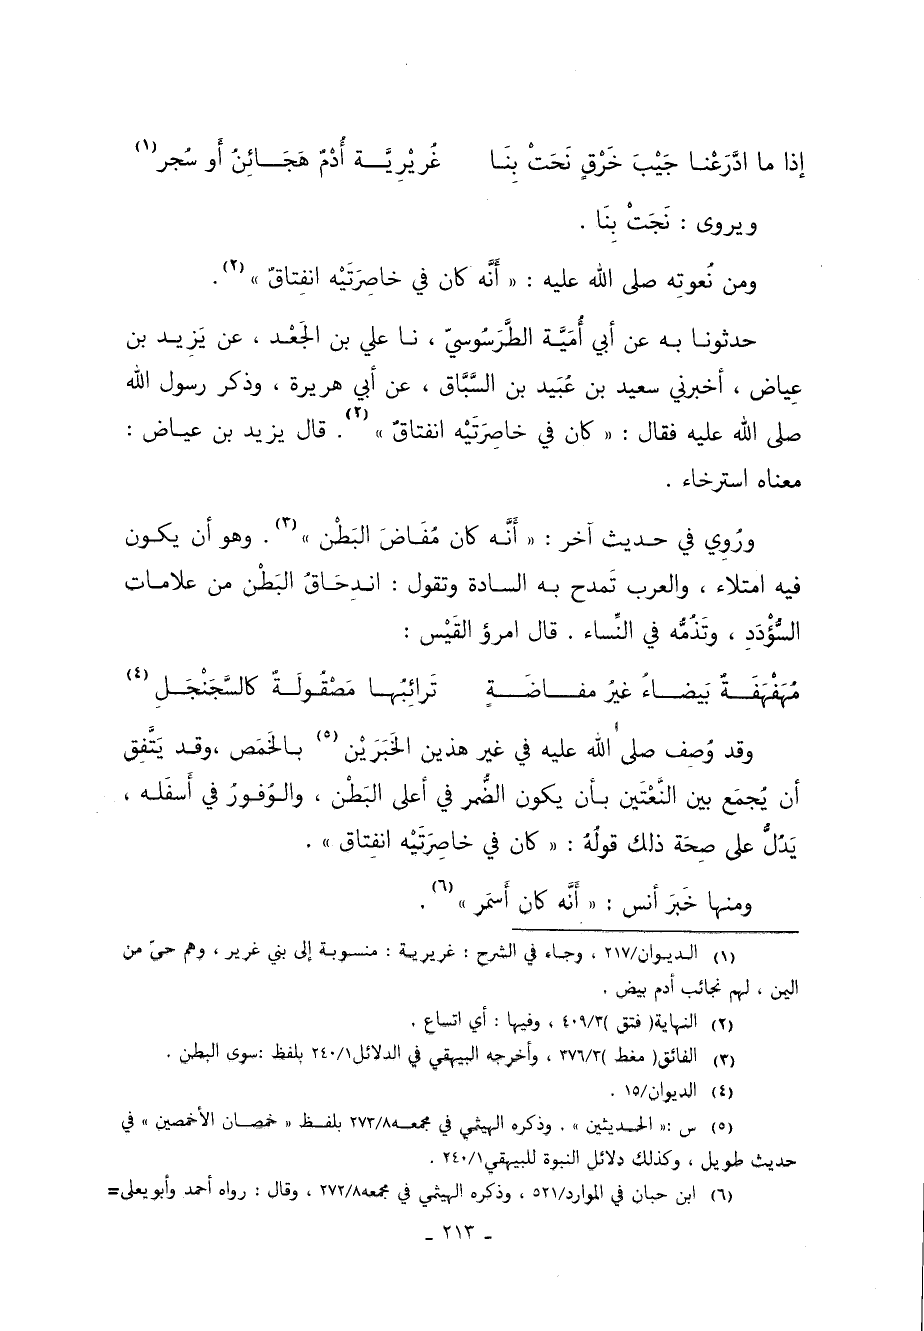 إذا ما ادَّرَعْنا جَيْبَ خَرْقٍ نَحَتْ بِنَا غُرَيْرِيَّة أُدْمٌ هَجَائِنُ أو سُجر(١)
ويروى : نَجَتْ بِنَا .
ومن نُعوته صلى الله عليه : « أَنَّه كان في خاصِرَتَيْه انفتاقٌ »(٢).
حدثونا به عن أبي أُمَيَّة الطَّرَسُوسيّ ، نا علي بن الجَعْد ، عن يَزيد بن
عياض ، أخبرني سعيد بن عُبَيد بن السَّبَّاق ، عن أبي هريرة ، وذكر رسول الله
صلى الله عليه فقال : « كان في خاصِرَتَيْه انفتاقٌ »(٢). قال يزيد بن عياض :
معناه استرخاء .
ورُوي في حديث آخر : « أَنَّه كان مُفَاضَ البَطْن »(٣). وهو أن يكون
فيه امتلاء ، والعرب تَمدح به السادة وتقول : اندحَاقُ البَطْن من علامات
السُّؤْدَدِ ، وتَذُمُّه في النِّساء . قال امرؤ القَيْس :
مُهَفْهَفَةٌ بَيضاءُ غيرُ مفاضَةٍ تَرائبُها مَصْقُولَةٌ كالسَّجَنْجَلِ(٤)
وقد وُصف صلى الله عليه في غير هذين الخَبَرَيْن(٥) بالخَمَص ،وقد يَتَّفِق
أن يُجمَع بين النَّعْتَين بأن يكون الضُّمر في أعلى البَطْن ، والوُفورُ في أَسفَله ،
يَدُلُّ على صحَة ذلك قولُهُ : « كان في خاصِرَتَيْه انفتاق » .
ومنها خَبَر أنس : « أَنَّه كان أَسمَر »(٦).
(١) الديوان/٢١٧ ، وجاء في الشرح : غريرية : منسوبة إلى بني غرير ، وهم حيّ من
اليمن ، لهم نجائب أدم بيض .
(٢) النهاية( فتق )٤٠٩/٣ ، وفيها : أي اتساع .
(٣) الفائق( مغط )٣٧٦/٣ ، وأخرجه البيهقي في الدلائل٢٤٠/١ بلفظ :سوى البطن .
(٤) الديوان/١٥ .
(٥) س :« الحديثين » . وذكره الهيثمي في مجمعه٢٧٣/٨ بلفظ « خمصان الأخمصين » في
حديث طويل ، وكذلك دلائل النبوة للبيهقي٢٤٠/١ .
(٦) ابن حبان في الموارد/٥٢١ ، وذكره الهيثمي في مجمعه٢٧٢/٨ ، وقال : رواه أحمد وأبو يعلى=
ـ ٢١٣ ـ